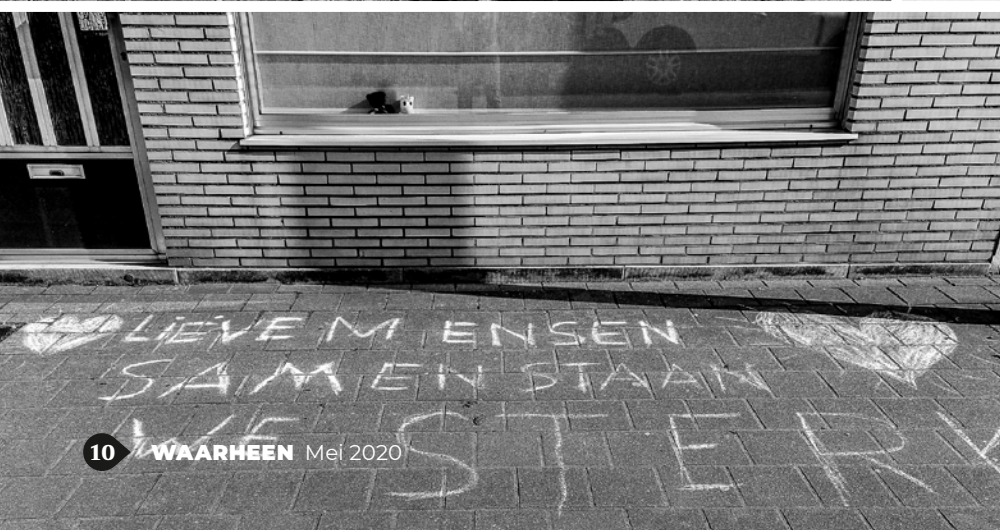 LIEVE MENSEN
SAMEN STAAN
WE STERK
10 WAARHEEN Mei 2020